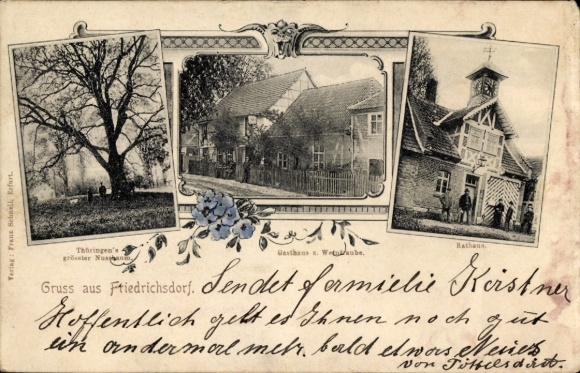 Thüringen's
grösster Nussbaum.
Gasthaus z. Weintraube.
Rathaus.
Verlag: Franz Schnell, Erfurt.
Gruss aus Friedrichsdorf. Sendet familie Kerstner
Hoffentlich geht es Ihnen noch gut
ein andermal mehr. bald etwas Neues
von